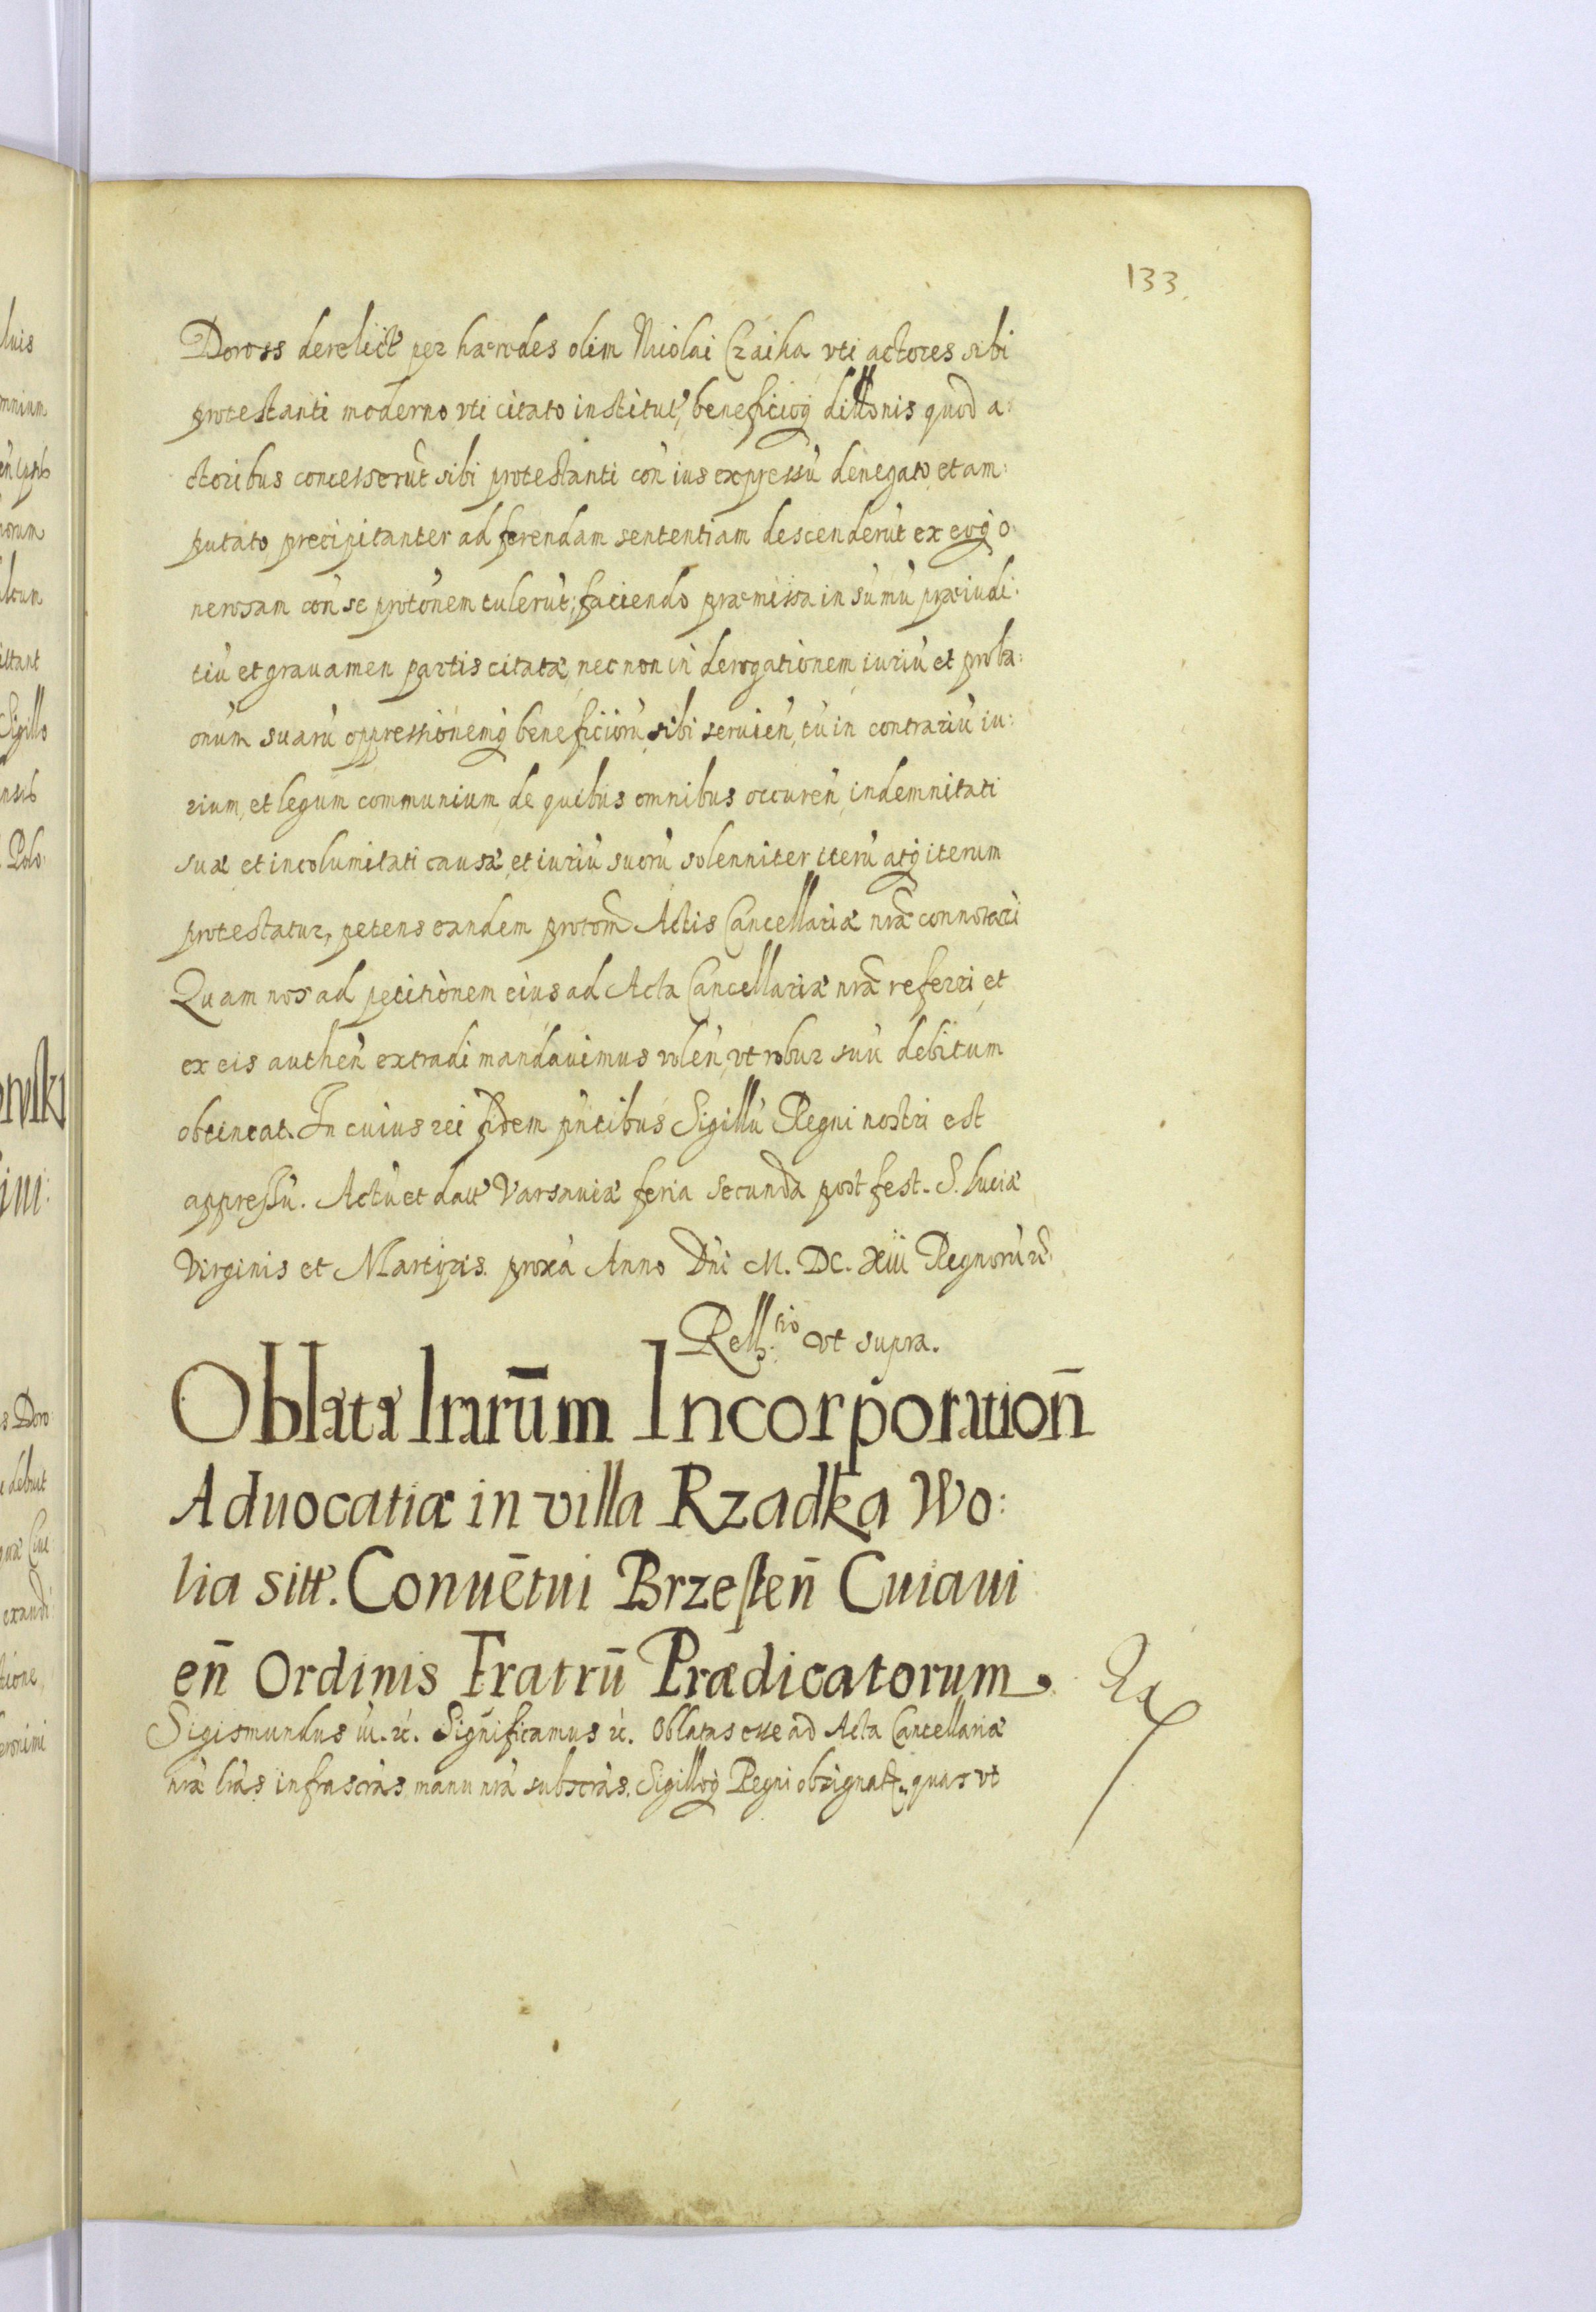 133.
Doross derelict' per hærædes olim Nicolai Czaika uti actores sibi
protestanti moderno uti citato institut', beneficioq dillonis quod a:
ctoribus concesserūt sibi protestanti con ius expressū denegato, et am:
putato precipitanter ad ferendam sententiam descenderūt ex eoq o:
nerosam con se protōnem tulerūt; faciendo præmissa in sūmū præiudi:
tiū et grauamen partis citatæ, nec non in derogationem iuriū et proba:
onum suarū oppressionemq beneficiorū sibi seruien, tū in contrariū iu:
rium, et legum communium, de quibus omnibus occuren, indemnitati
suæ et incolumitati causæ, et iuriū suorū solenniter iterū atq iterum
protestatur, petens eandem protom Actis Cancellariæ nræ connotari
Quam nos ad petitionem eius ad Acta Cancellariæ nræ referri et
ex eis authen extradi mandauimus volen, vt robur suū debitum
obtineat. In cuius rei fidem pntibus Sigillū Regni nostri est
appressū. Actū et datt' Varsauiæ feria secunda post fest. S. Luciæ
Virginis et Martyris proxa Anno Dni M. DC. Xiii Regnorū rc.
Rell:tio vt supra.
Oblata lrarūm Incorporation̄
Aduocatiæ in villa Rzadka Wo:
lia sitt'. Conuētui Brzesten̄ Cuiaui
en̄ Ordinis Fratrū Prædicatorum.
Sigismundus iii. rc. Significamus rc. Oblatas esse ad Acta Cancellariæ
nræ lras infrascras manu nra subscras. Sigilloq Regni obsignat., quar vt